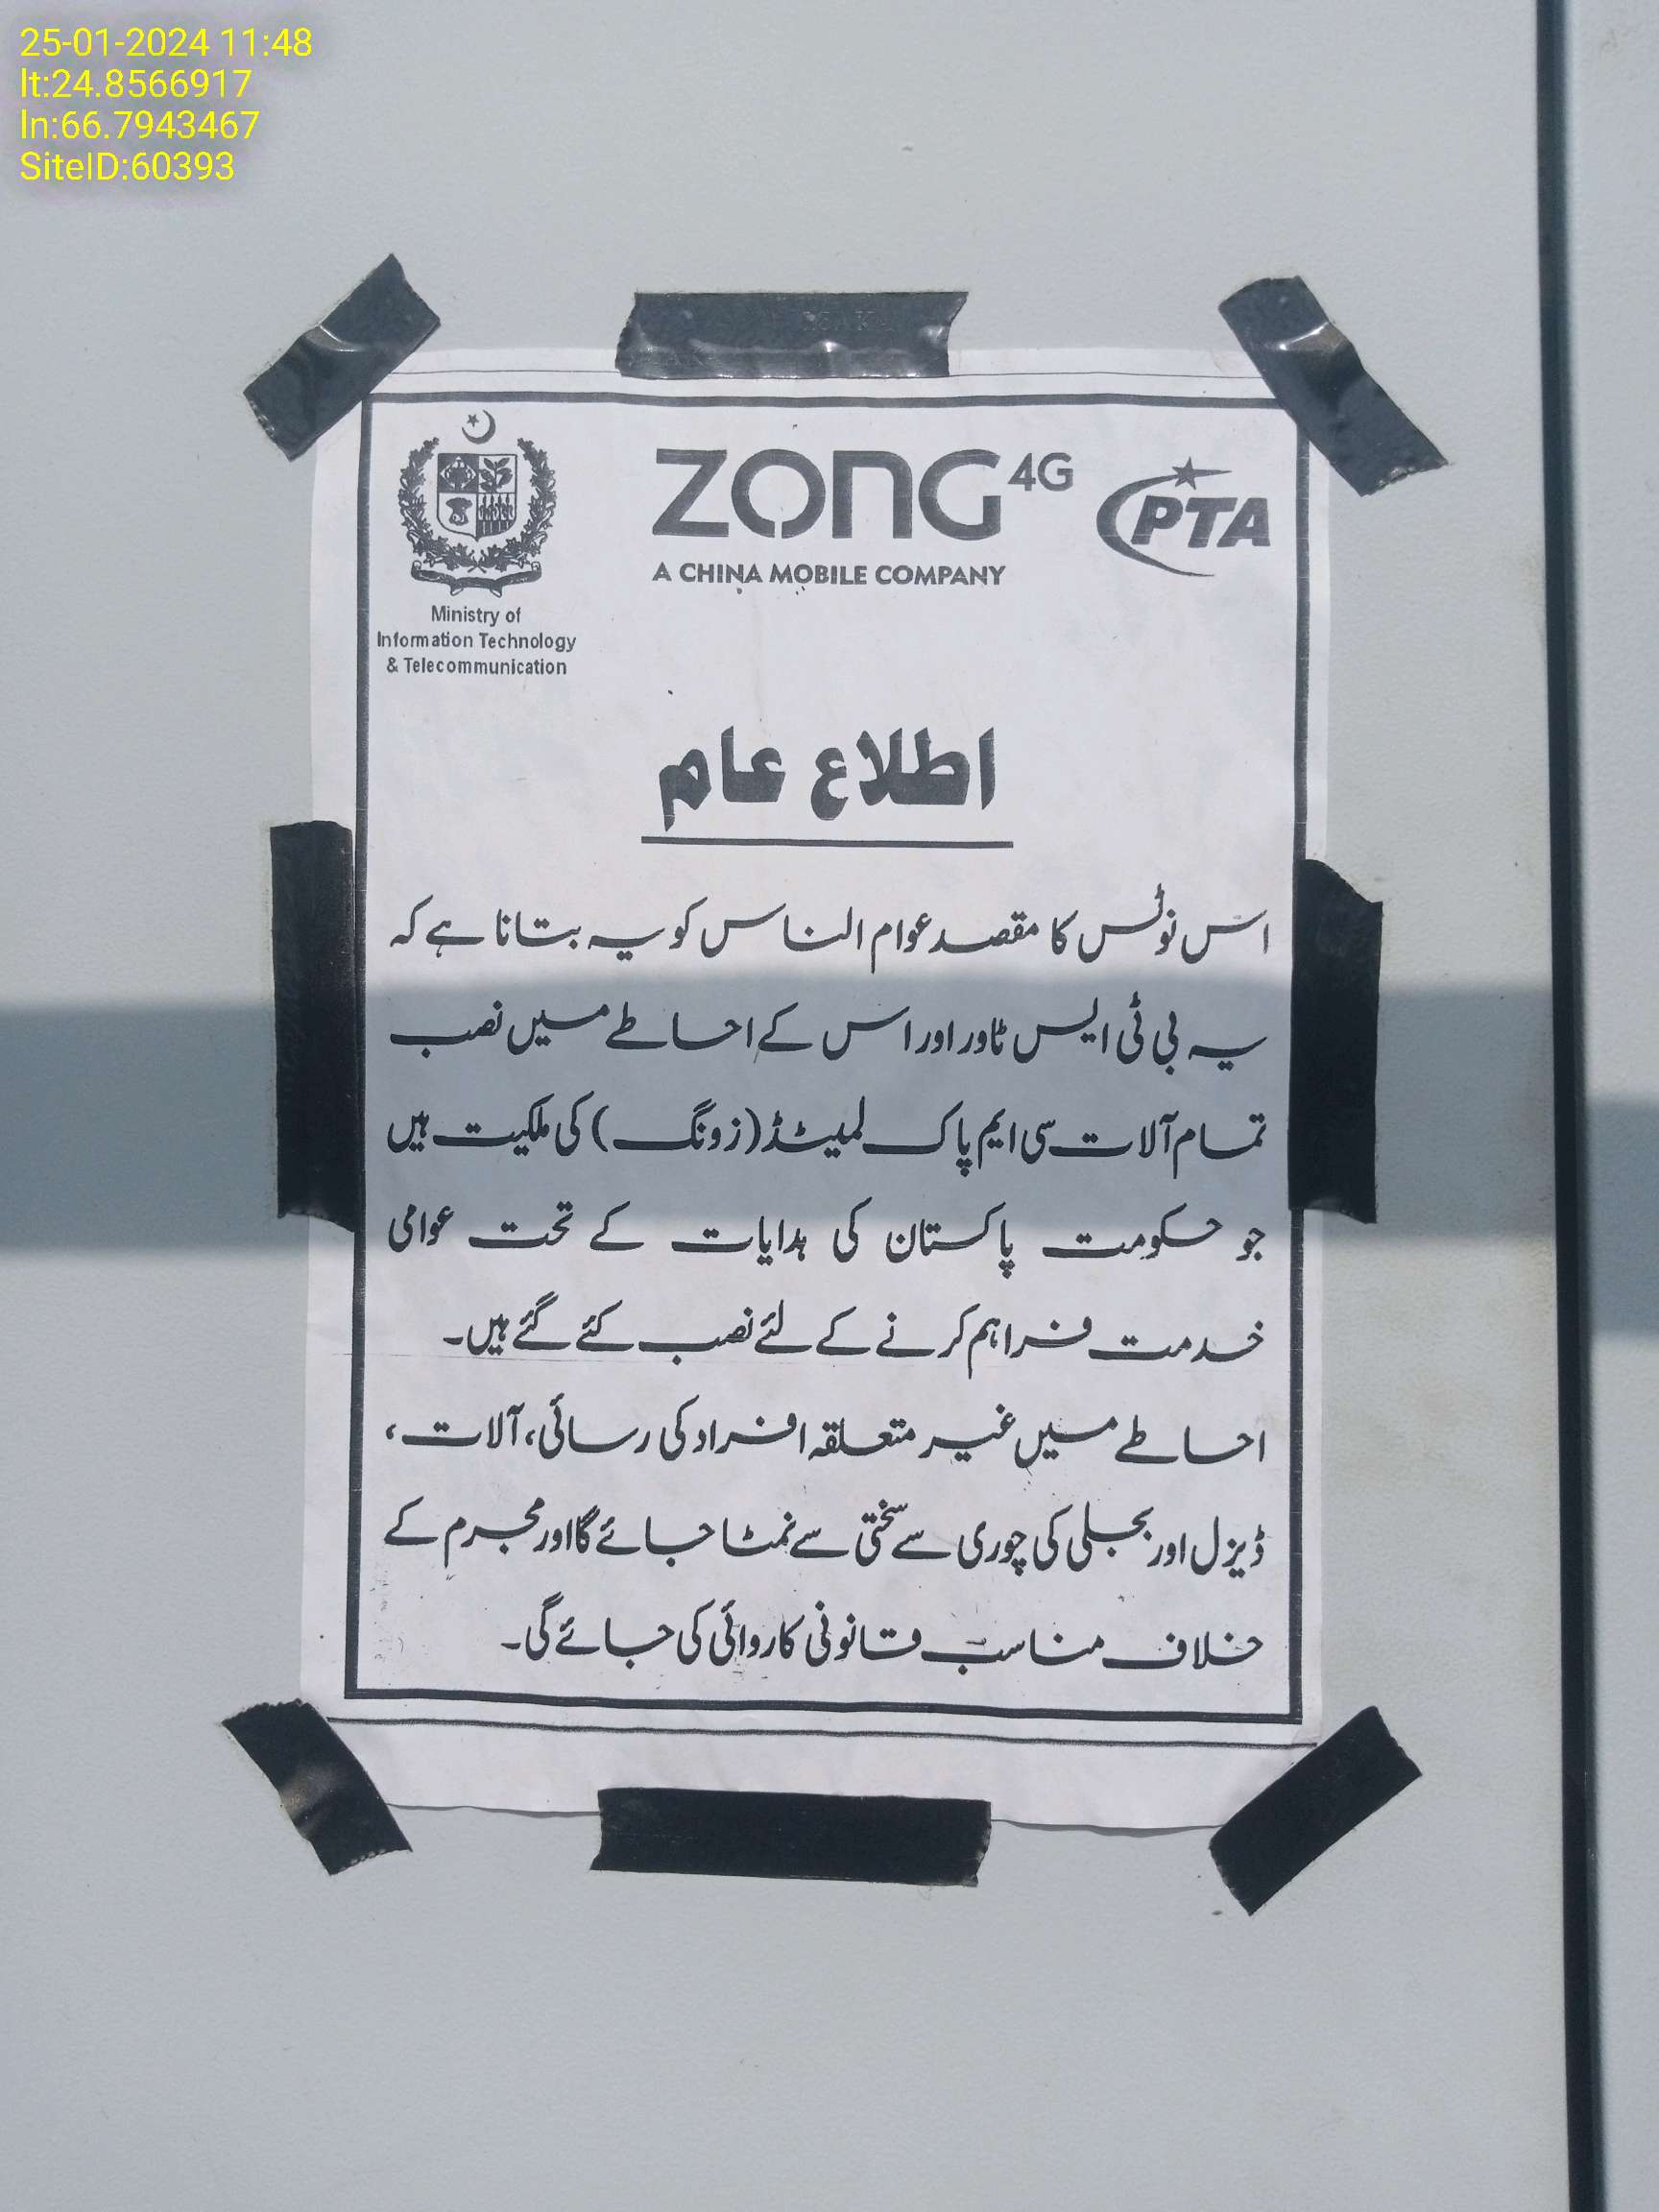 25-01-2024 11:48
lt:24.8566917
ln:66.7943467
SiteID:60393
Ministry of
Information Technology
& Telecommunication
ZONG 4G
A CHINA MOBILE COMPANY
PTA
اطلاع عام
اس نوٹس کا مقصد عوام الناس کو یہ بتانا ہے کہ
یہ بی ٹی ایس ٹاور اور اس کے احاطے میں نصب
تمام آلات سی ایم پاک لمیٹڈ (زونگ) کی ملکیت ہیں
جو حکومت پاکستان کی ہدایات کے تحت عوامی
خدمت فراہم کرنے کے لئے نصب کئے گئے ہیں۔
احاطے میں غیر متعلقہ افراد کی رسائی، آلات،
ڈیزل اور بجلی کی چوری سے سختی سے نمٹا جائے گا اور مجرم کے
خلاف مناسب قانونی کاروائی کی جائے گی۔